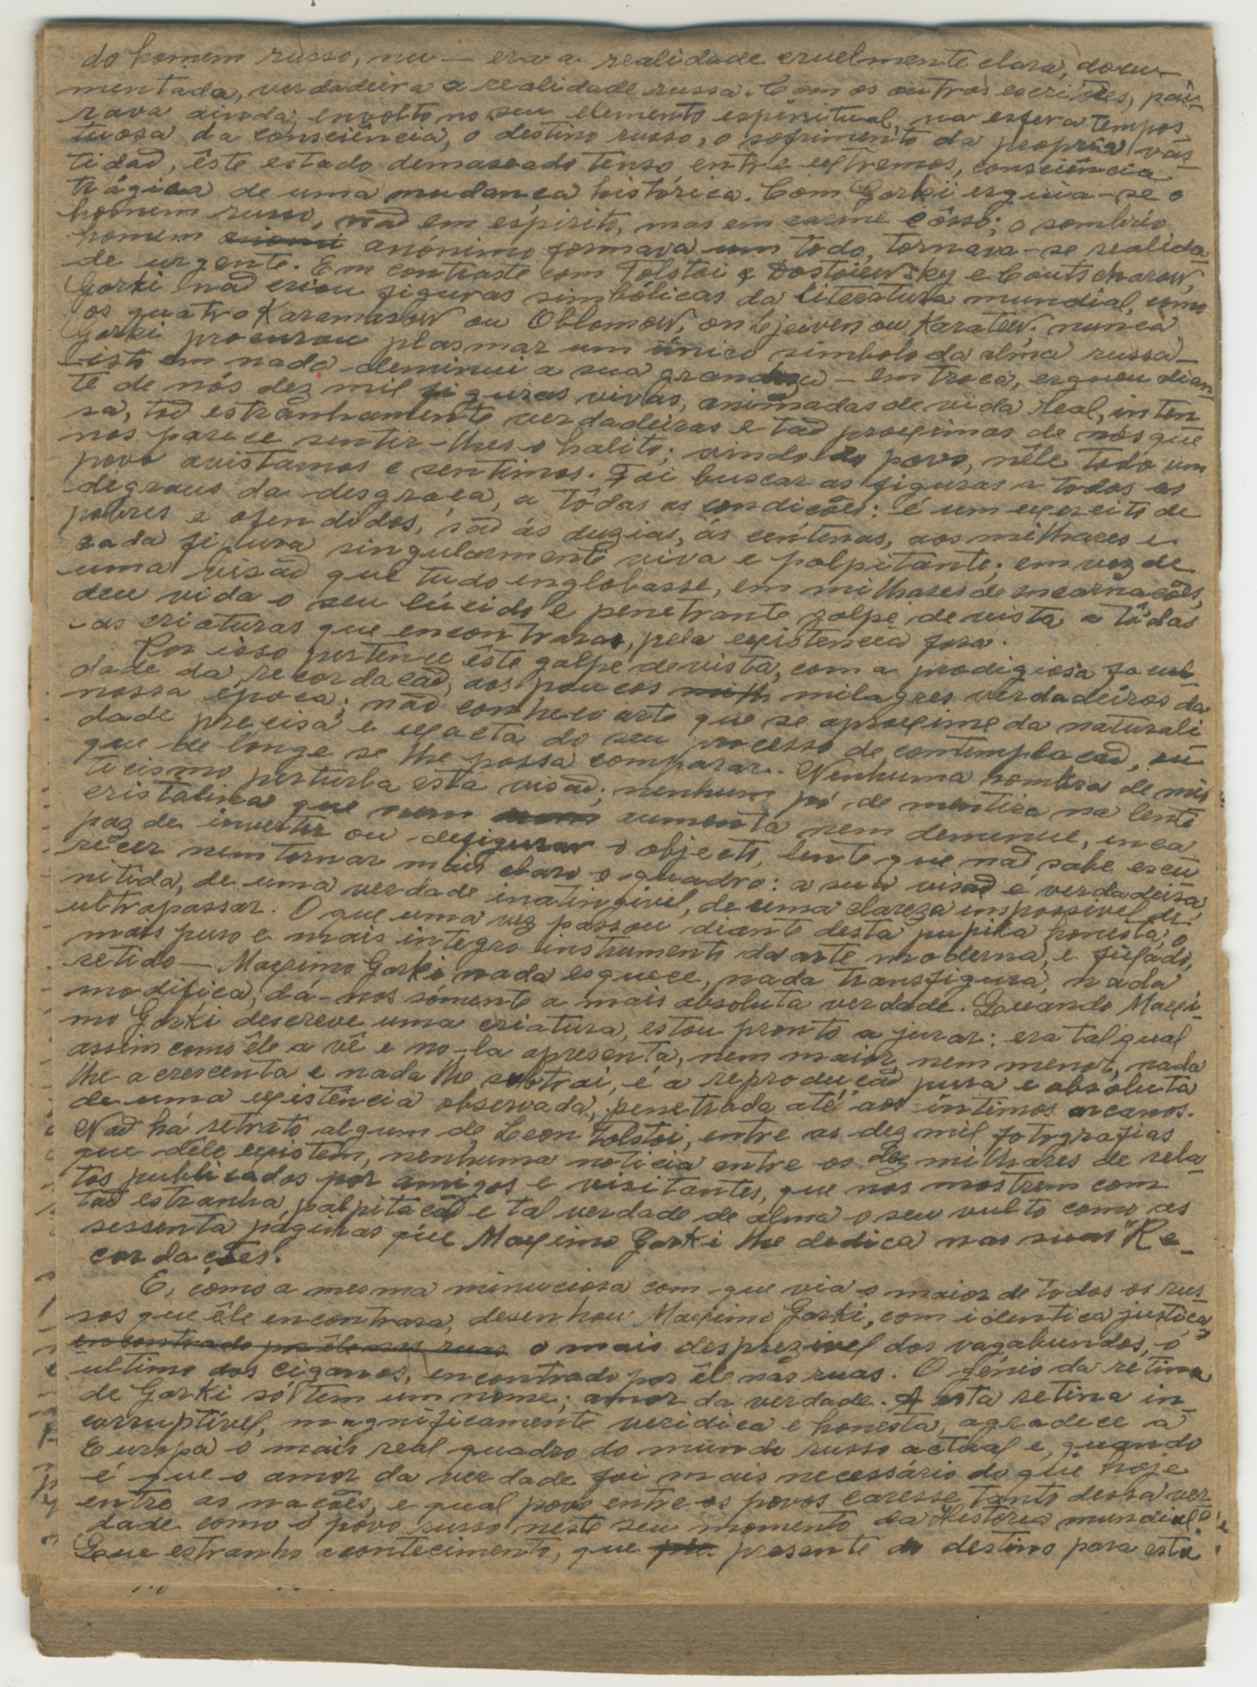 do homem russo, nu — era a realidade cruelmente clara, docu-
mentada, verdadeira a realidade russa. Com os outros escritores, pai-
rava ainda, envolto no seu elemento espiritual, na esfera tempes
tuosa da consciência, o destino russo, o sofrimento da propria vas-
tidaõ, êste estado demaseado tenso entre extremos, consciência
trágica de uma mudança histórica. Com Gorki erguia-se o
homem russo, naõ em espirito, mas em carne e ôsso; o sombrio
homem anonimo formava um todo, tornava-se realida-
de urgente. Em contraste com Tolstoi e Dostoiewsky e Goutscharow,
Gorki naõ criou figuras simbólicas da literatura mundial, como
os quatro Karamasow ou Oblomow, ou Ljewen ou Karatew. nunca
Gorki procurou plasmar um único simbolo da alma russa—
isto em nada deminui a sua grandeza — em troca, ergueu dian-
te de nós dez mil figuras vivas, animadas de vida real, inten
sa, taõ estranhamente verdadeiras e taõ proximas de nós que
nos parece sentir-lhes o halito; vindo do povo, nêle todo um
povo avistamos e sentimos. Foi buscar as figuras a todos os
degraus da desgraça, a tôdas as condições: é um exercito de
pobres e ofendidos, saõ ás duzias, ás centenas, aos milhares e
cada figura singularmente viva e palpitante; em vez de
uma visaõ que tudo englobasse, em milhares de encarnações,
deu vida o seu lúcido e penetrante golpe de vista a tôdas
as criaturas que encontrara, pela existencia fora.
Por isso pertence êste golpe de vista, com a prodigiosa facul-
dade da recordaçaõ, aos poucos milagres verdadeiros da
nossa época; não conheço arte que se aproxime da naturali
dade precisa e exacta do seu processo de contemplaçaõ, ou
que de longe se lhe possa comparar. Nenhuma sombra de mis
ticismo perturba esta visaõ; nenhum pó de mentira na lente
cristalina que nem aumenta nem demenue, inca
paz de inverter ou defigurar o objecto, lente que naõ sabe escu
recer nem tornar mais claro o quadro: a sua visaõ é verdadeira
nitida, de uma verdade inatingivel, de uma clareza impossivel de
ultrapassar. O que uma vez passou diante desta pupila honesta, o
mais puro e mais integro instrumento da arte moderna, é fixado,
retido — Maximo Gorki nada esquece, nada transfigura, nada
modifica, dá-nos sómente a mais absoluta verdade. Quando Maxi-
mo Gorki descreve uma criatura, estou pronto a jurar: era tal qual
assim como êle a vê e no-la apresenta, nem maior, nem menor, nada
lhe acrescenta e nada lhe subtrai, é a reproduçaõ pura e absoluta
de uma existência observada, penetrada até aos íntimos arcanos.
Naõ há retrato algum de Leon Tolstoi, entre as dez mil fotografias
que dêle existem, nenhuma noticia entre os dez milhares de rela-
tos publicados por amigos e visitantes, que nos mostrem com
taõ estranha palpitaçaõ e tal verdade de alma o seu vulto como as
sessenta páginas que Maximo Gorki lhe dedica nas suas "Re-
cordações.
E, como a mesma minuciosa com que via o maior de todos os rus-
sos que êle encontrara, desenhou Maximo Gorki, com identica justiça,
encontrado por êle nas ruas o mais desprezivel dos vagabundos, o
ultimo dos ciganos, encontrado por êle nas ruas. O génio da retina
de Gorki só tem um nome; amor da verdade. A esta retina in-
corruptível, magnificamente veridica e honesta, agradece a
Europa o mais real quadro do mundo russo actual e, quando
é que o amor da verdade foi mais necessário do que hoje
entre as nações, e qual povo entre os povos caresse tanto dessa ver
dade como o povo russo neste seu momento da História mundial?
Que estranho acontecimento, que presente do destino para esta